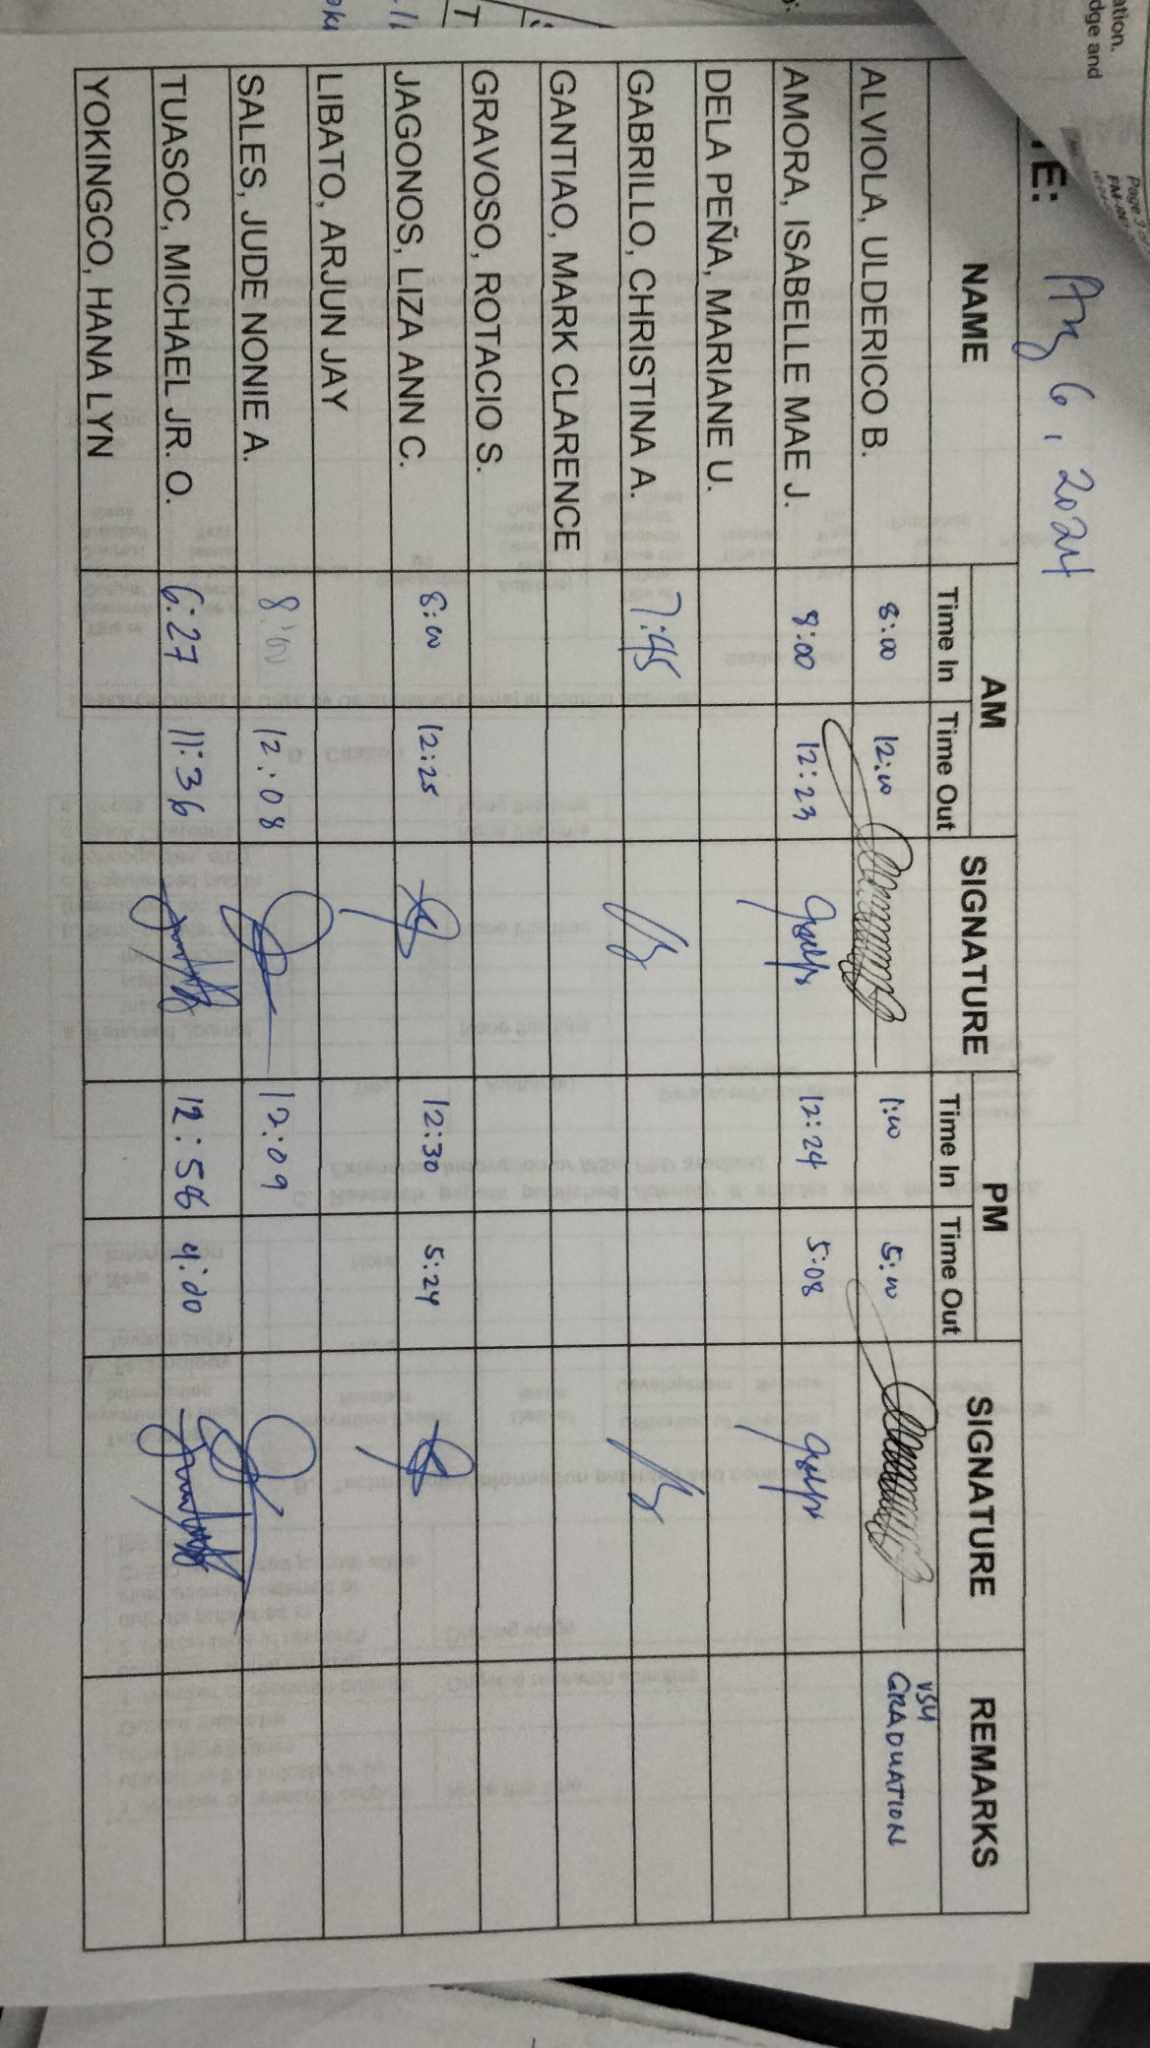 ation.
dge and
TE: Aug 6, 2024
NAME AM SIGNATURE PM SIGNATURE REMARKS
Time In Time Out Time In Time Out
ALVIOLA, ULDERICO B. 8:00 12:00 1:00 5:00 VSU GRADUATION
AMORA, ISABELLE MAE J. 8:00 12:23 12:24 5:08
DELA PEÑA, MARIANE U.
GABRILLO, CHRISTINA A. 7:45
GANTIAO, MARK CLARENCE
GRAVOSO, ROTACIO S.
JAGONOS, LIZA ANN C. 8:00 12:25 12:30 5:24
LIBATO, ARJUN JAY
SALES, JUDE NONIE A. 8:00 12:08 12:09
TUASOC, MICHAEL JR. O. 6:27 11:36 12:56 4:00
YOKINGCO, HANA LYN